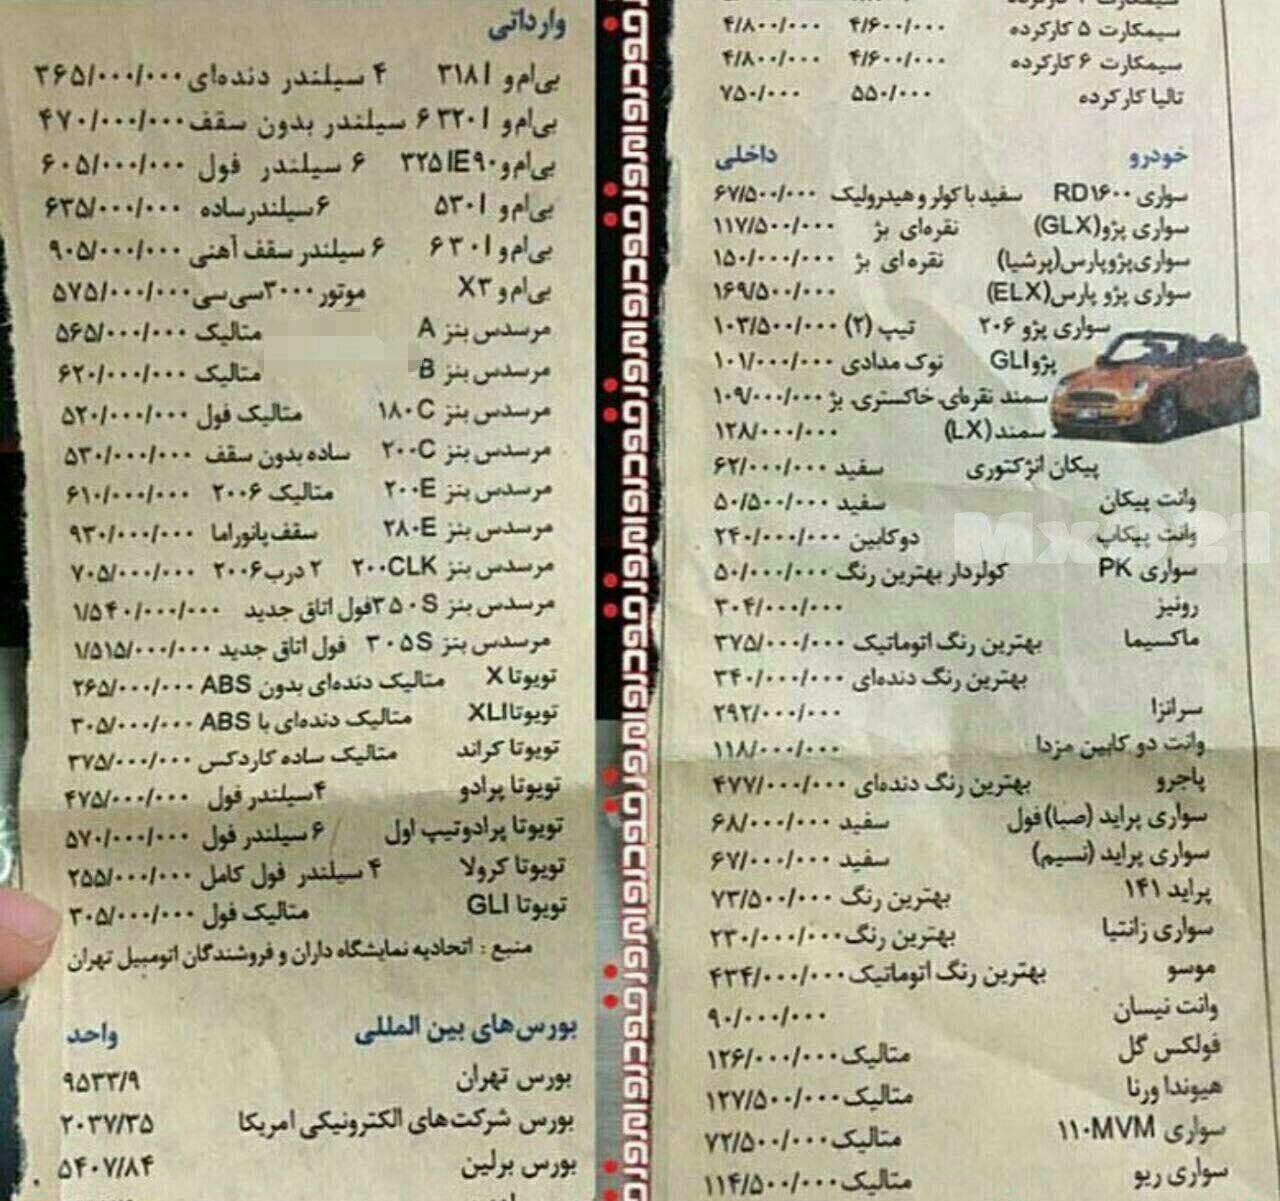 سیمکارت ۵ کارکرده ۴/۶۰۰/۰۰۰ ۴/۸۰۰/۰۰۰
سیمکارت ۶ کارکرده ۴/۶۰۰/۰۰۰ ۴/۸۰۰/۰۰۰
تالیا کارکرده ۵۵۰/۰۰۰ ۷۵۰/۰۰۰
خودرو داخلی
سواری RD۱۶۰۰ سفید با کولر و هیدرولیک ۶۷/۵۰۰/۰۰۰
سواری پژو(GLX) نقره‌ای بژ ۱۱۷/۵۰۰/۰۰۰
سواری‌پژوپارس(پرشیا) نقره‌ای بژ ۱۵۰/۰۰۰/۰۰۰
سواری پژو پارس(ELX) ۱۶۹/۵۰۰/۰۰۰
سواری پژو ۲۰۶ تیپ (۲) ۱۰۳/۵۰۰/۰۰۰
پژوGLI نوک مدادی ۱۰۱/۰۰۰/۰۰۰
سمند نقره‌ای، خاکستری، بژ ۱۰۹/۰۰۰/۰۰۰
سمند(LX) ۱۲۸/۰۰۰/۰۰۰
پیکان انژکتوری سفید ۶۲/۰۰۰/۰۰۰
وانت پیکان سفید ۵۰/۵۰۰/۰۰۰
وانت پیکاپ دوکابین ۲۴۰/۰۰۰/۰۰۰
سواری PK کولردار بهترین رنگ ۵۰/۰۰۰/۰۰۰
رونیز ۳۰۴/۰۰۰/۰۰۰
ماکسیما بهترین رنگ اتوماتیک ۳۷۵/۰۰۰/۰۰۰
بهترین رنگ دنده‌ای ۳۴۰/۰۰۰/۰۰۰
سرانزا ۲۹۲/۰۰۰/۰۰۰
وانت دو کابین مزدا ۱۱۸/۰۰۰/۰۰۰
پاجرو بهترین رنگ دنده‌ای ۴۷۷/۰۰۰/۰۰۰
سواری پراید (صبا)فول سفید ۶۸/۰۰۰/۰۰۰
سواری پراید (نسیم) سفید ۶۷/۰۰۰/۰۰۰
پراید ۱۴۱ بهترین رنگ ۷۳/۵۰۰/۰۰۰
سواری زانتیا بهترین رنگ ۲۳۰/۰۰۰/۰۰۰
موسو بهترین رنگ اتوماتیک ۴۳۴/۰۰۰/۰۰۰
وانت نیسان ۹۰/۰۰۰/۰۰۰
فولکس گل متالیک ۱۲۶/۰۰۰/۰۰۰
هیوندا ورنا متالیک ۱۲۷/۵۰۰/۰۰۰
سواری ۱۱۰MVM متالیک ۷۲/۵۰۰/۰۰۰
سواری ریو متالیک ۱۱۴/۵۰۰/۰۰۰
وارداتی
بی‌ام‌و ۳۱۸I ۴ سیلندر دنده‌ای ۳۶۵/۰۰۰/۰۰۰
بی‌ام‌و ۳۲۰I ۶ سیلندر بدون سقف ۴۷۰/۰۰۰/۰۰۰
بی‌ام‌و ۳۲۵IE۹۰ ۶ سیلندر فول ۶۰۵/۰۰۰/۰۰۰
بی‌ام‌و ۵۳۰I ۶سیلندر ساده ۶۳۵/۰۰۰/۰۰۰
بی‌ام‌و ۶۳۰I ۶ سیلندر سقف آهنی ۹۰۵/۰۰۰/۰۰۰
بی‌ام‌و X۳ موتور ۳۰۰۰سی‌سی ۵۷۵/۰۰۰/۰۰۰
مرسدس بنز A متالیک ۵۶۵/۰۰۰/۰۰۰
مرسدس بنز B متالیک ۶۲۰/۰۰۰/۰۰۰
مرسدس بنز ۱۸۰C متالیک فول ۵۲۰/۰۰۰/۰۰۰
مرسدس بنز ۲۰۰C ساده بدون سقف ۵۳۰/۰۰۰/۰۰۰
مرسدس بنز ۲۰۰E متالیک ۲۰۰۶ ۶۱۰/۰۰۰/۰۰۰
مرسدس بنز ۲۸۰E سقف پانوراما ۹۳۰/۰۰۰/۰۰۰
مرسدس بنز ۲۰۰CLK ۲ درب۲۰۰۶ ۷۰۵/۰۰۰/۰۰۰
مرسدس بنز ۳۵۰S فول اتاق جدید ۱/۵۴۰/۰۰۰/۰۰۰
مرسدس بنز ۳۰۵S فول اتاق جدید ۱/۵۱۵/۰۰۰/۰۰۰
تویوتا X متالیک دنده‌ای بدون ABS ۲۶۵/۰۰۰/۰۰۰
تویوتاXLI متالیک دنده‌ای با ABS ۳۰۵/۰۰۰/۰۰۰
تویوتا کراند متالیک ساده کاردکس ۳۷۵/۰۰۰/۰۰۰
تویوتا پرادو ۴سیلندر فول ۴۷۵/۰۰۰/۰۰۰
تویوتا پرادوتیپ اول ۶ سیلندر فول ۵۷۰/۰۰۰/۰۰۰
تویوتا کرولا ۴ سیلندر فول کامل ۲۵۵/۰۰۰/۰۰۰
تویوتا GLI متالیک فول ۳۰۵/۰۰۰/۰۰۰
منبع : اتحادیه نمایشگاه داران و فروشندگان اتومبیل تهران
بورس‌های بین المللی واحد
بورس تهران ۹۵۳۳/۹
بورس شرکت‌های الکترونیکی امریکا ۲۰۳۷/۳۵
بورس برلین ۵۴۰۷/۸۴